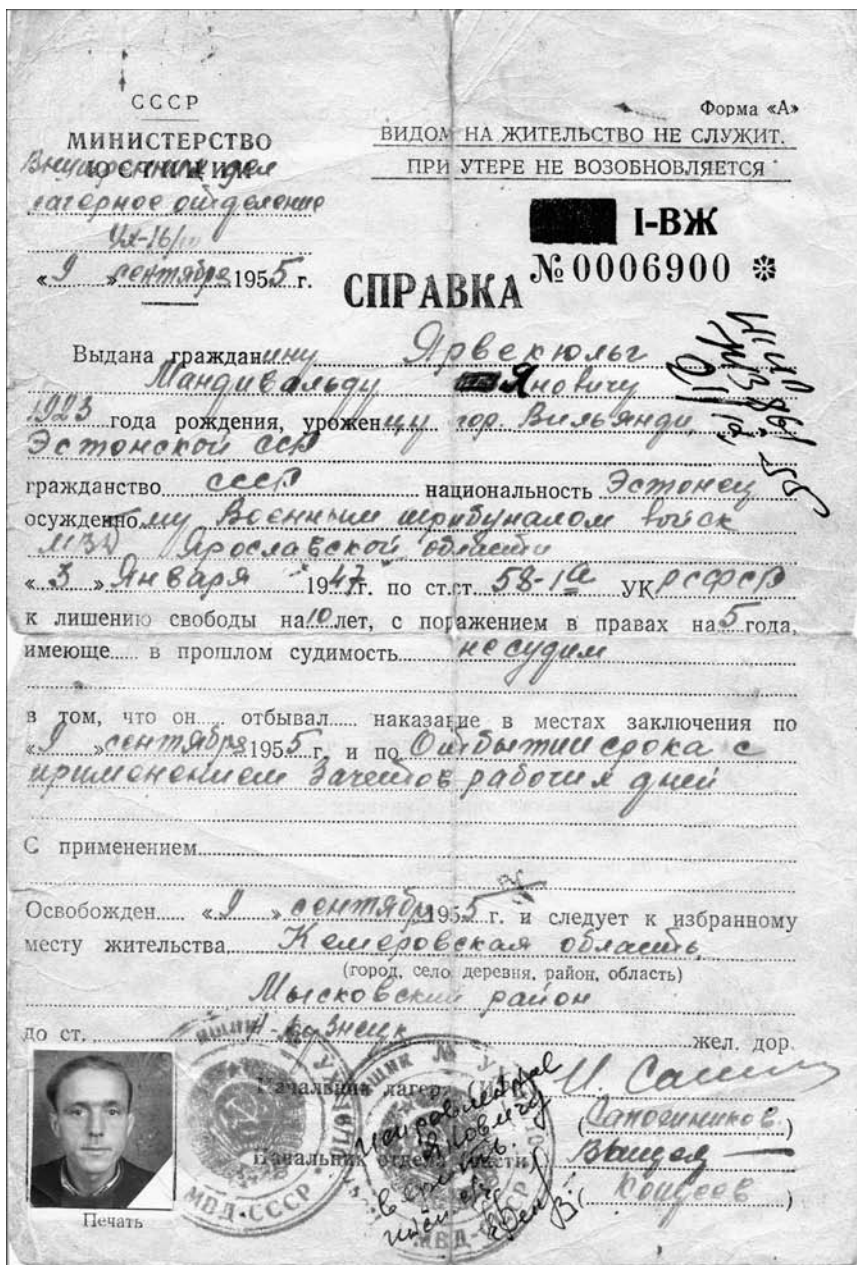 СССР
МИНИСТЕРСТВО
Внутренних дел
лагерное отделение
УХ-16/
«9» сентября 1955 г.
Форма «А»
ВИДОМ НА ЖИТЕЛЬСТВО НЕ СЛУЖИТ.
ПРИ УТЕРЕ НЕ ВОЗОБНОВЛЯЕТСЯ
I-ВЖ
№ 0006900
СПРАВКА
Выдана гражданину Ярвекюльг
Мандивальду Яновичу
1923 года рождения, уроженцу гор. Вильянди,
Эстонской ССР
гражданство СССР национальность Эстонец
осужденному Военным трибуналом войск
МВД Ярославской области
«3» Января 1947 г. по ст.ст. 58-1а УК РСФСР
к лишению свободы на 10 лет, с поражением в правах на 5 года,
имеюще в прошлом судимость не судим
в том, что он отбывал наказание в местах заключения по
«9» сентября 1955 г. и по Отбытии срока с
применением Зачетов рабочих дней
С применением
Освобожден «9» сентября 1955 г. и следует к избранному
месту жительства Кемеровская область,
(город, село, деревня, район, область)
Мысковский район
до ст. Н-Кузнецк жел. дор.
Начальник лагеря
(Сапогиников)
Начальник отдела (части)
Печать
МВД-СССР
МВД